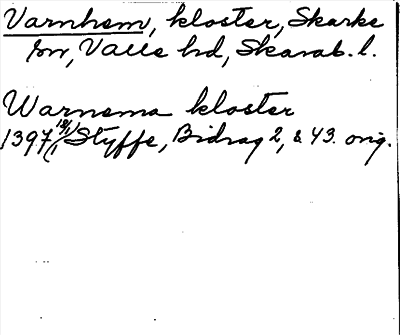 Varnhem, kloster, Skarke
sn, Valle hd, Skarab. l.
Warnema kloster
1397 18/1, Styffe, Bidrag 2, s 43. orig.